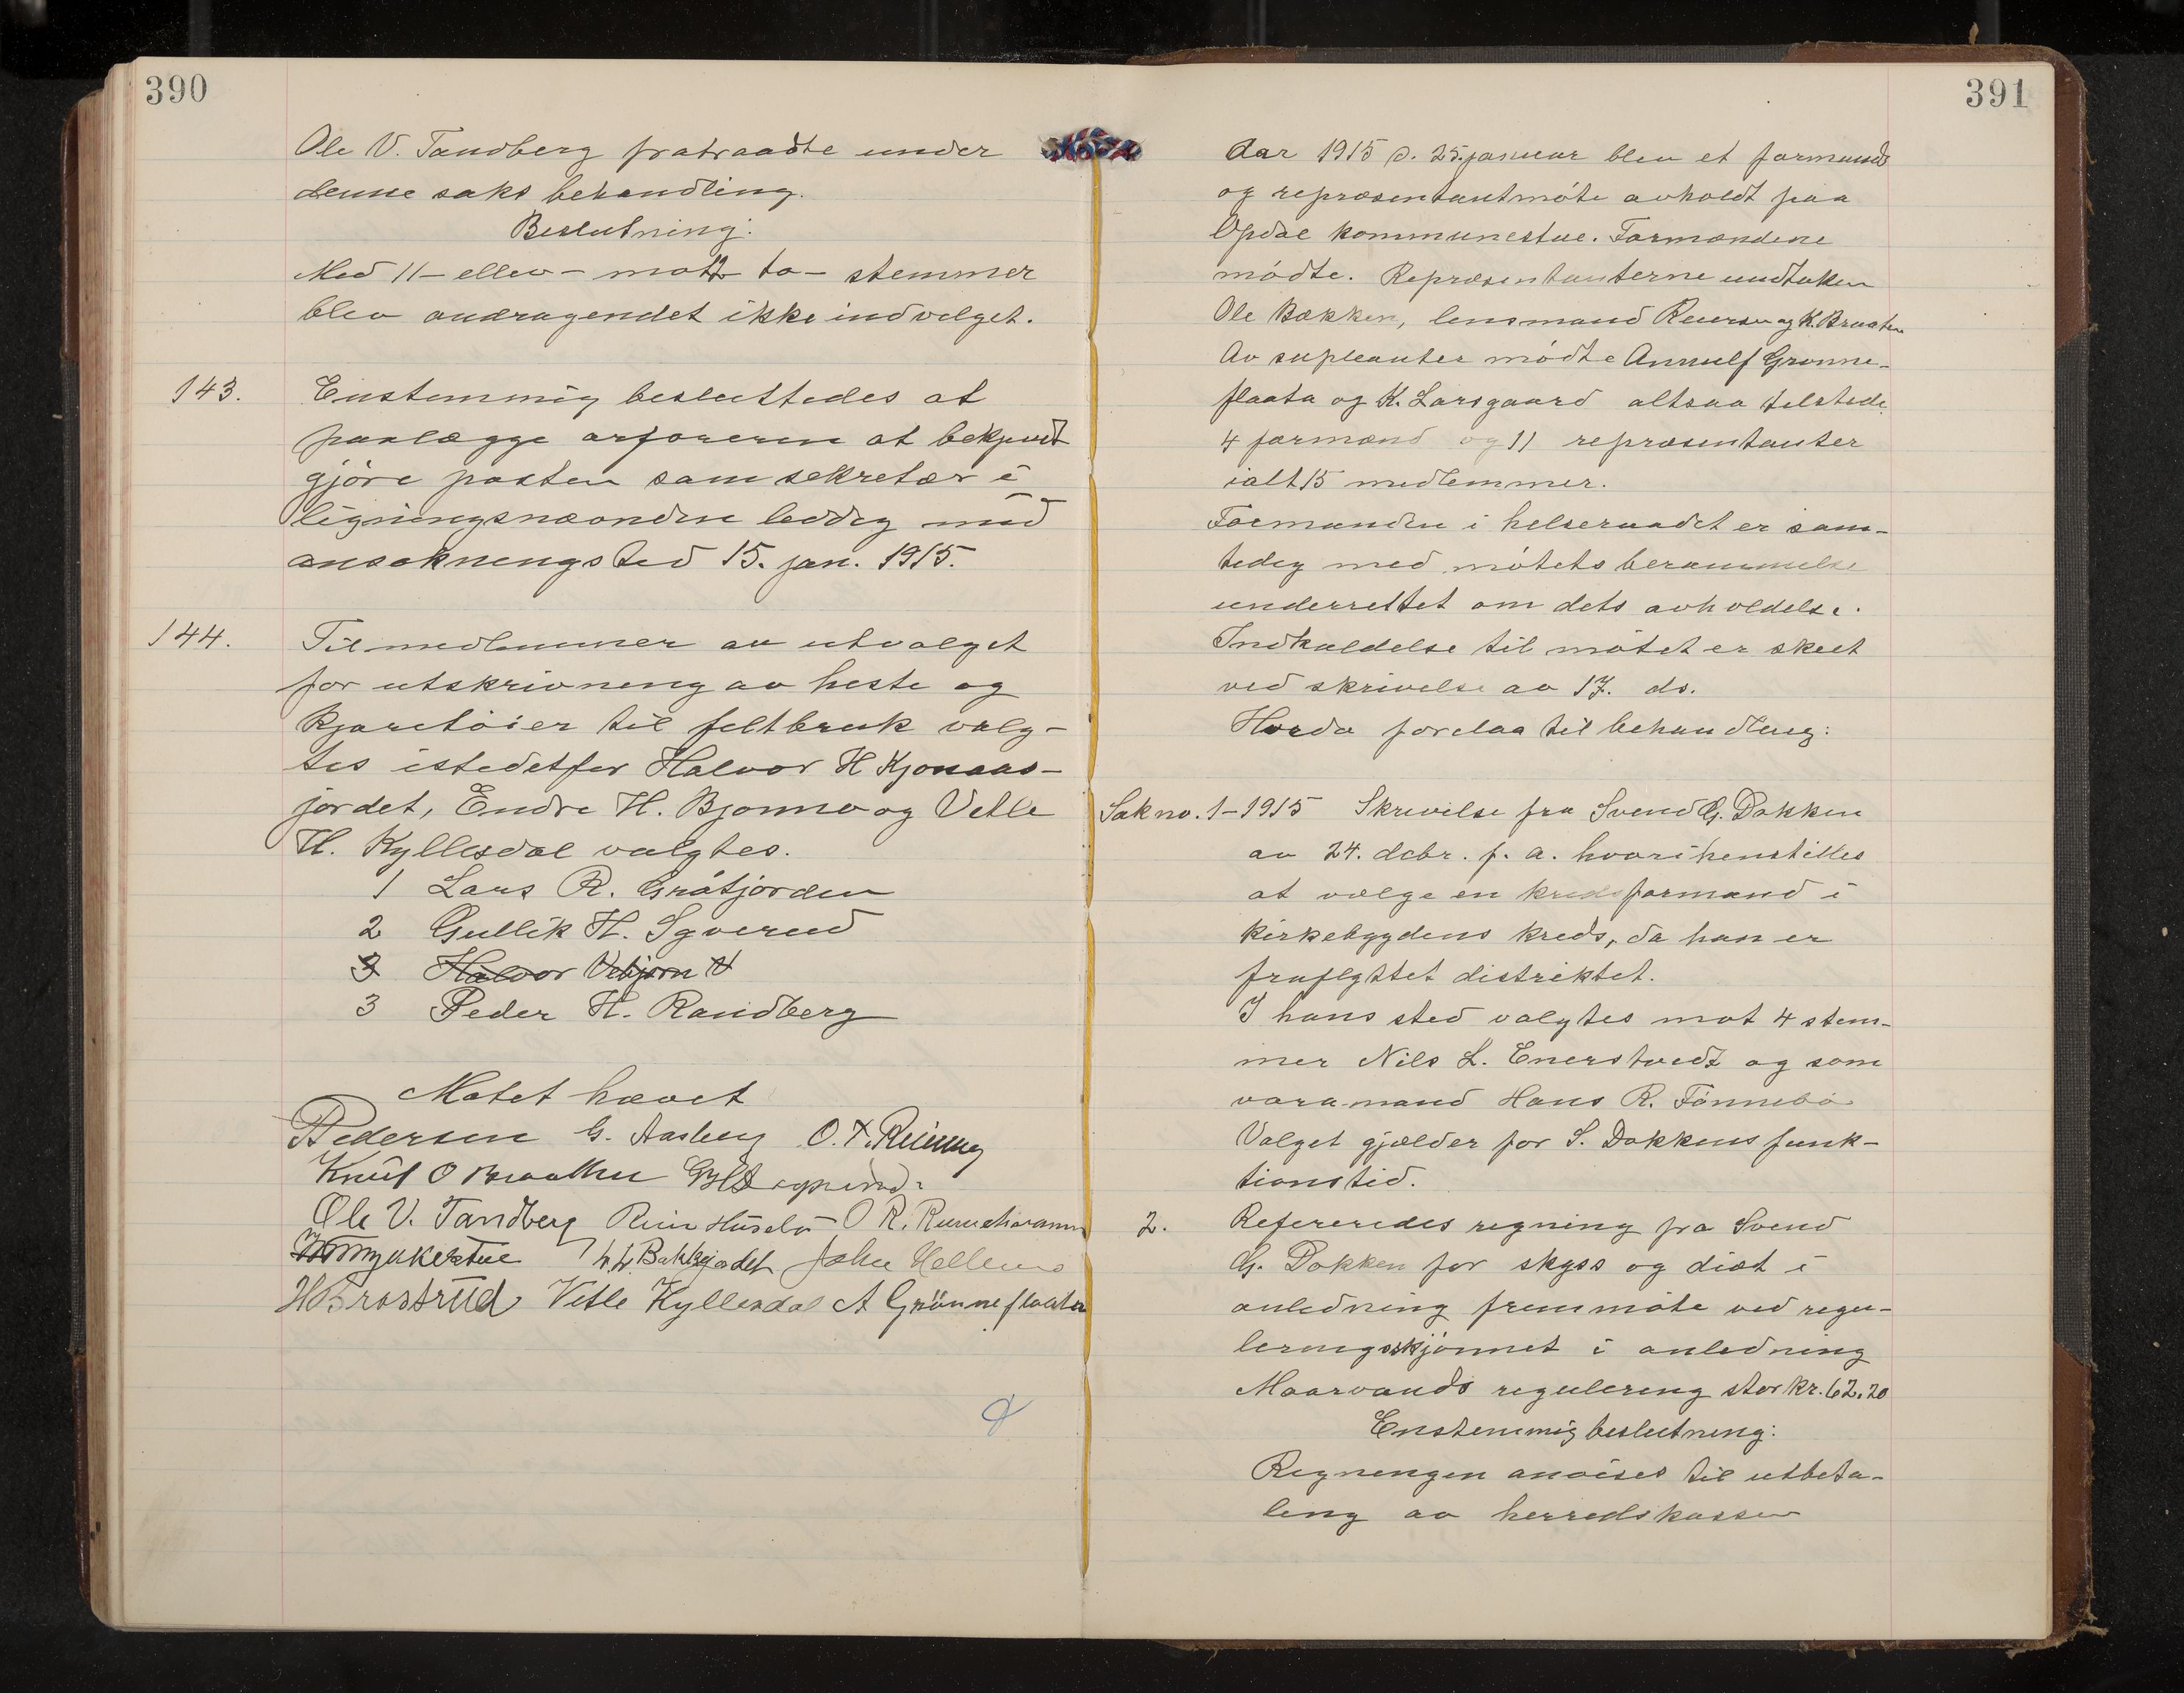 390
Ole V. Tandberg fratraadte under
denne saks behandling.
Beslutning:
Med 11 - ellev - mot 2 - to - stemmer
blev andragendet ikke indvilget.
143. Enstemmig besluttedes at
paalægge ordføreren at bekjendt
gjøre posten som sekretær i
ligningsnævnden ledig med
ansøkningsted 15. jan. 1915.
144. Til medlemmer av utvalget
for utskrivning av heste og
kjøretøier til feltbruk valg-
tes istedetfor Halvor H Kjonaas-
jordet, Endre H. Bjonno og Vetle
H. Kyllesdal valgtes.
1 Lars R. Gråtjorden
2 Gullik H. Sgverud
3 Halvor Vebjørn
3 Peder H. Randberg
Møtet hævet
Pedersen G. Aasberg O. T.
Knut O Braathen
Ole V. Tandberg
H. H. Bakkejordet John Hellem
H Brostrud Vetle Kyllesdal A Grønneflaata
391
Aar 1915 d. 25. januar blev et formands
og repræsentantmøte avholdt paa
Opdal kommunestue. Formændene
mødte. Repræsentanterne undtaken
Ole Bakken, lensmand Reiersen og K. Braaten
Av supleanter mødte Annulf Grønne-
flaata og K. Larsgaard altsaa tilstede
4 formænd og 11 repræsentanter
ialt 15 medlemmer.
Formanden i helseraadet er sam-
tidig med møtets berammelse
underrettet om dets avholdelse.
Indkaldelse til møtet er skeet
ved skrivelse av 17. ds.
Hvorda forelaa til behandling:
Sak no. 1-1915 Skrivelse fra Svend G. Dokken
av 24. dcbr. f. a. hvori henstilles
at vælge en kredsformand i
kirkebygdens kreds, da han er
fraflyttet distriktet.
I hans sted valgtes mot 4 stem-
mer Nils L. Enerstvedt og som
varamand Hans R. Tønnebø
Valget gjælder for S. Dokkens funk-
tionstid.
2. Refereredes regning fra Svend
G. Dokken for skyss og diæt i
anledning fremmøte ved regu-
leringsskjønnet i anledning
Maarvands regulering stor kr. 62.20
Enstemmig beslutning:
Regningen anvises til utbeta-
ling av herredskassen